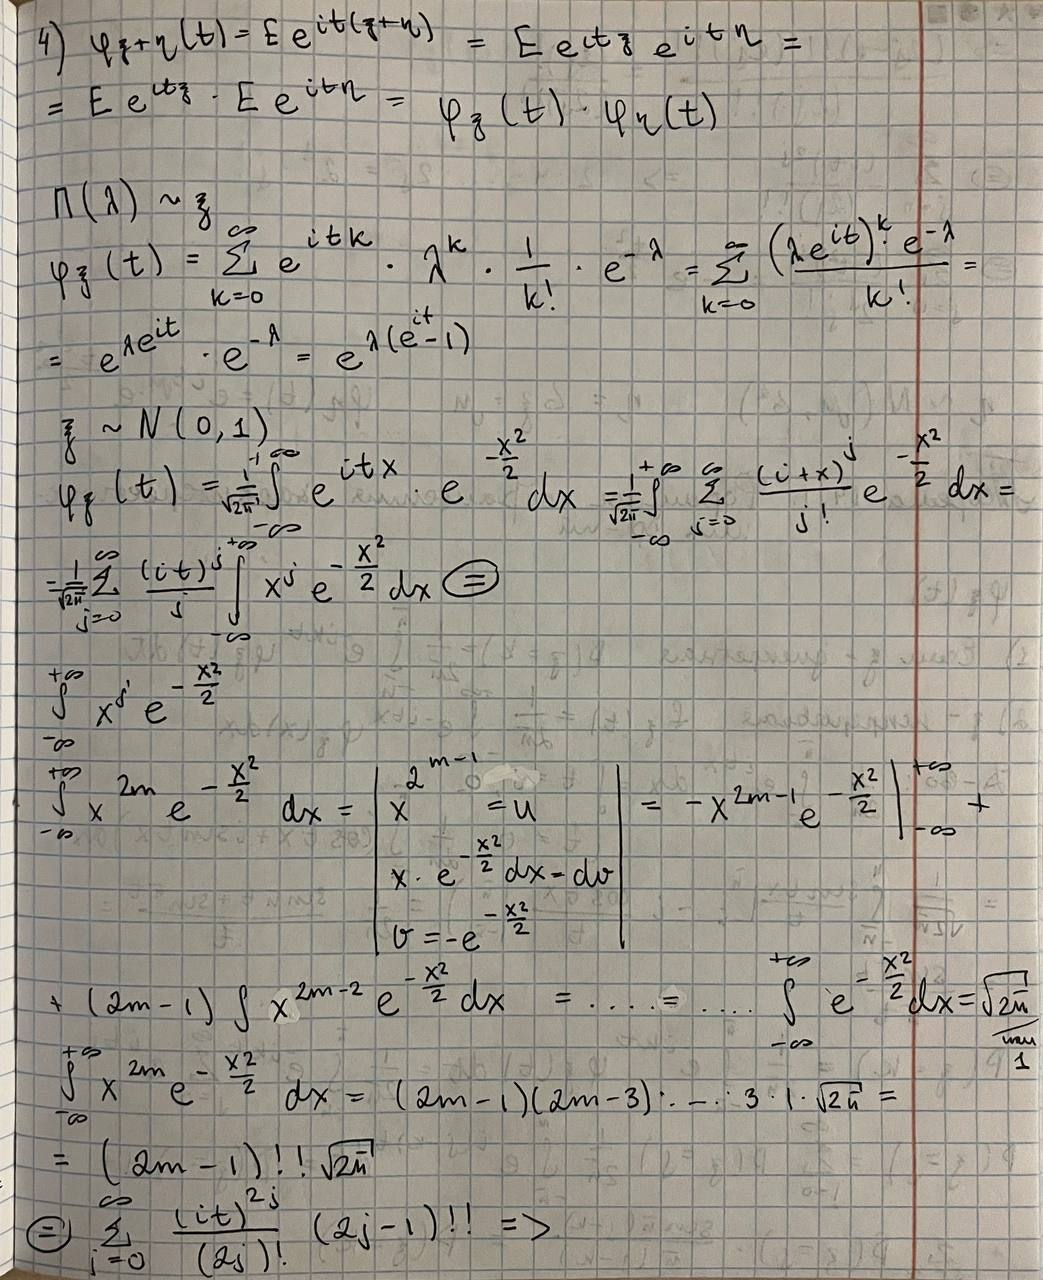 4) φ_{ξ+η}(t) = E e^{it(ξ+η)} = E e^{itξ} e^{itη} =
= E e^{itξ} · E e^{itη} = φ_ξ(t) · φ_η(t)
Π(λ) ~ ξ
φ_ξ(t) = ∑_{k=0}^{∞} e^{itk} · λ^k · 1/k! · e^{-λ} = ∑_{k=0}^{∞} (λe^{it})^k e^{-λ} / k! =
= e^{λe^{it}} · e^{-λ} = e^{λ(e^{it}-1)}
ξ ~ N(0,1)
φ_ξ(t) = 1/√2π ∫_{-∞}^{+∞} e^{itx} · e^{-x²/2} dx = 1/√2π ∫_{-∞}^{+∞} ∑_{j=0}^{∞} (itx)^j / j! e^{-x²/2} dx =
= 1/√2π ∑_{j=0}^{∞} (it)^j / j ∫_{-∞}^{+∞} x^j e^{-x²/2} dx ⊜
∫_{-∞}^{+∞} x^j e^{-x²/2}
∫_{-∞}^{+∞} x^{2m} e^{-x²/2} dx = | x^{2m-1} = u | = -x^{2m-1} e^{-x²/2} |_{-∞}^{+∞} +
x · e^{-x²/2} dx = dv
v = -e^{-x²/2}
+ (2m-1) ∫ x^{2m-2} e^{-x²/2} dx = .... = .... ∫_{-∞}^{+∞} e^{-x²/2} dx = √2π
или 1
∫_{-∞}^{+∞} x^{2m} e^{-x²/2} dx = (2m-1)(2m-3)· ... · 3 · 1 · √2π =
= (2m-1)!! √2π
⊜ ∑_{j=0}^{∞} (it)^{2j} / (2j)! (2j-1)!! =>